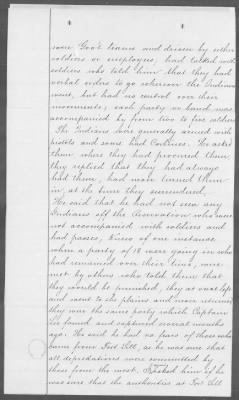 4
4
some Gov't teams and driven by either
soldiers or employees, had talked with
soldiers who told him that they had
verbal orders to go wherever the Indians
went, but had no control over their
movements; each party or band was
accompanied by from two to five soldiers
The Indians were generally armed with
pistols and some had Carbines. He asked
them where they had procured them,
they replied that they had always
had them, had never turned them
in, at the time they surrendered.
He said that he had not seen any
Indians off the Reservation who were
not accompanied with soldiers and
had passes, knew of one instance
where a party of 17 were going in who
had remained over their time, were
met by others who told them that
they would be punished, they at once left
and went to the plains and never returned
they was the same party which Captain
Lee found and captured several months
ago. He said he had no fears of those who
came from Fort Sill, as he was sure that
all depredations were committed by
those from the west. I asked him if he
was sure that the authorities at Fort Sill